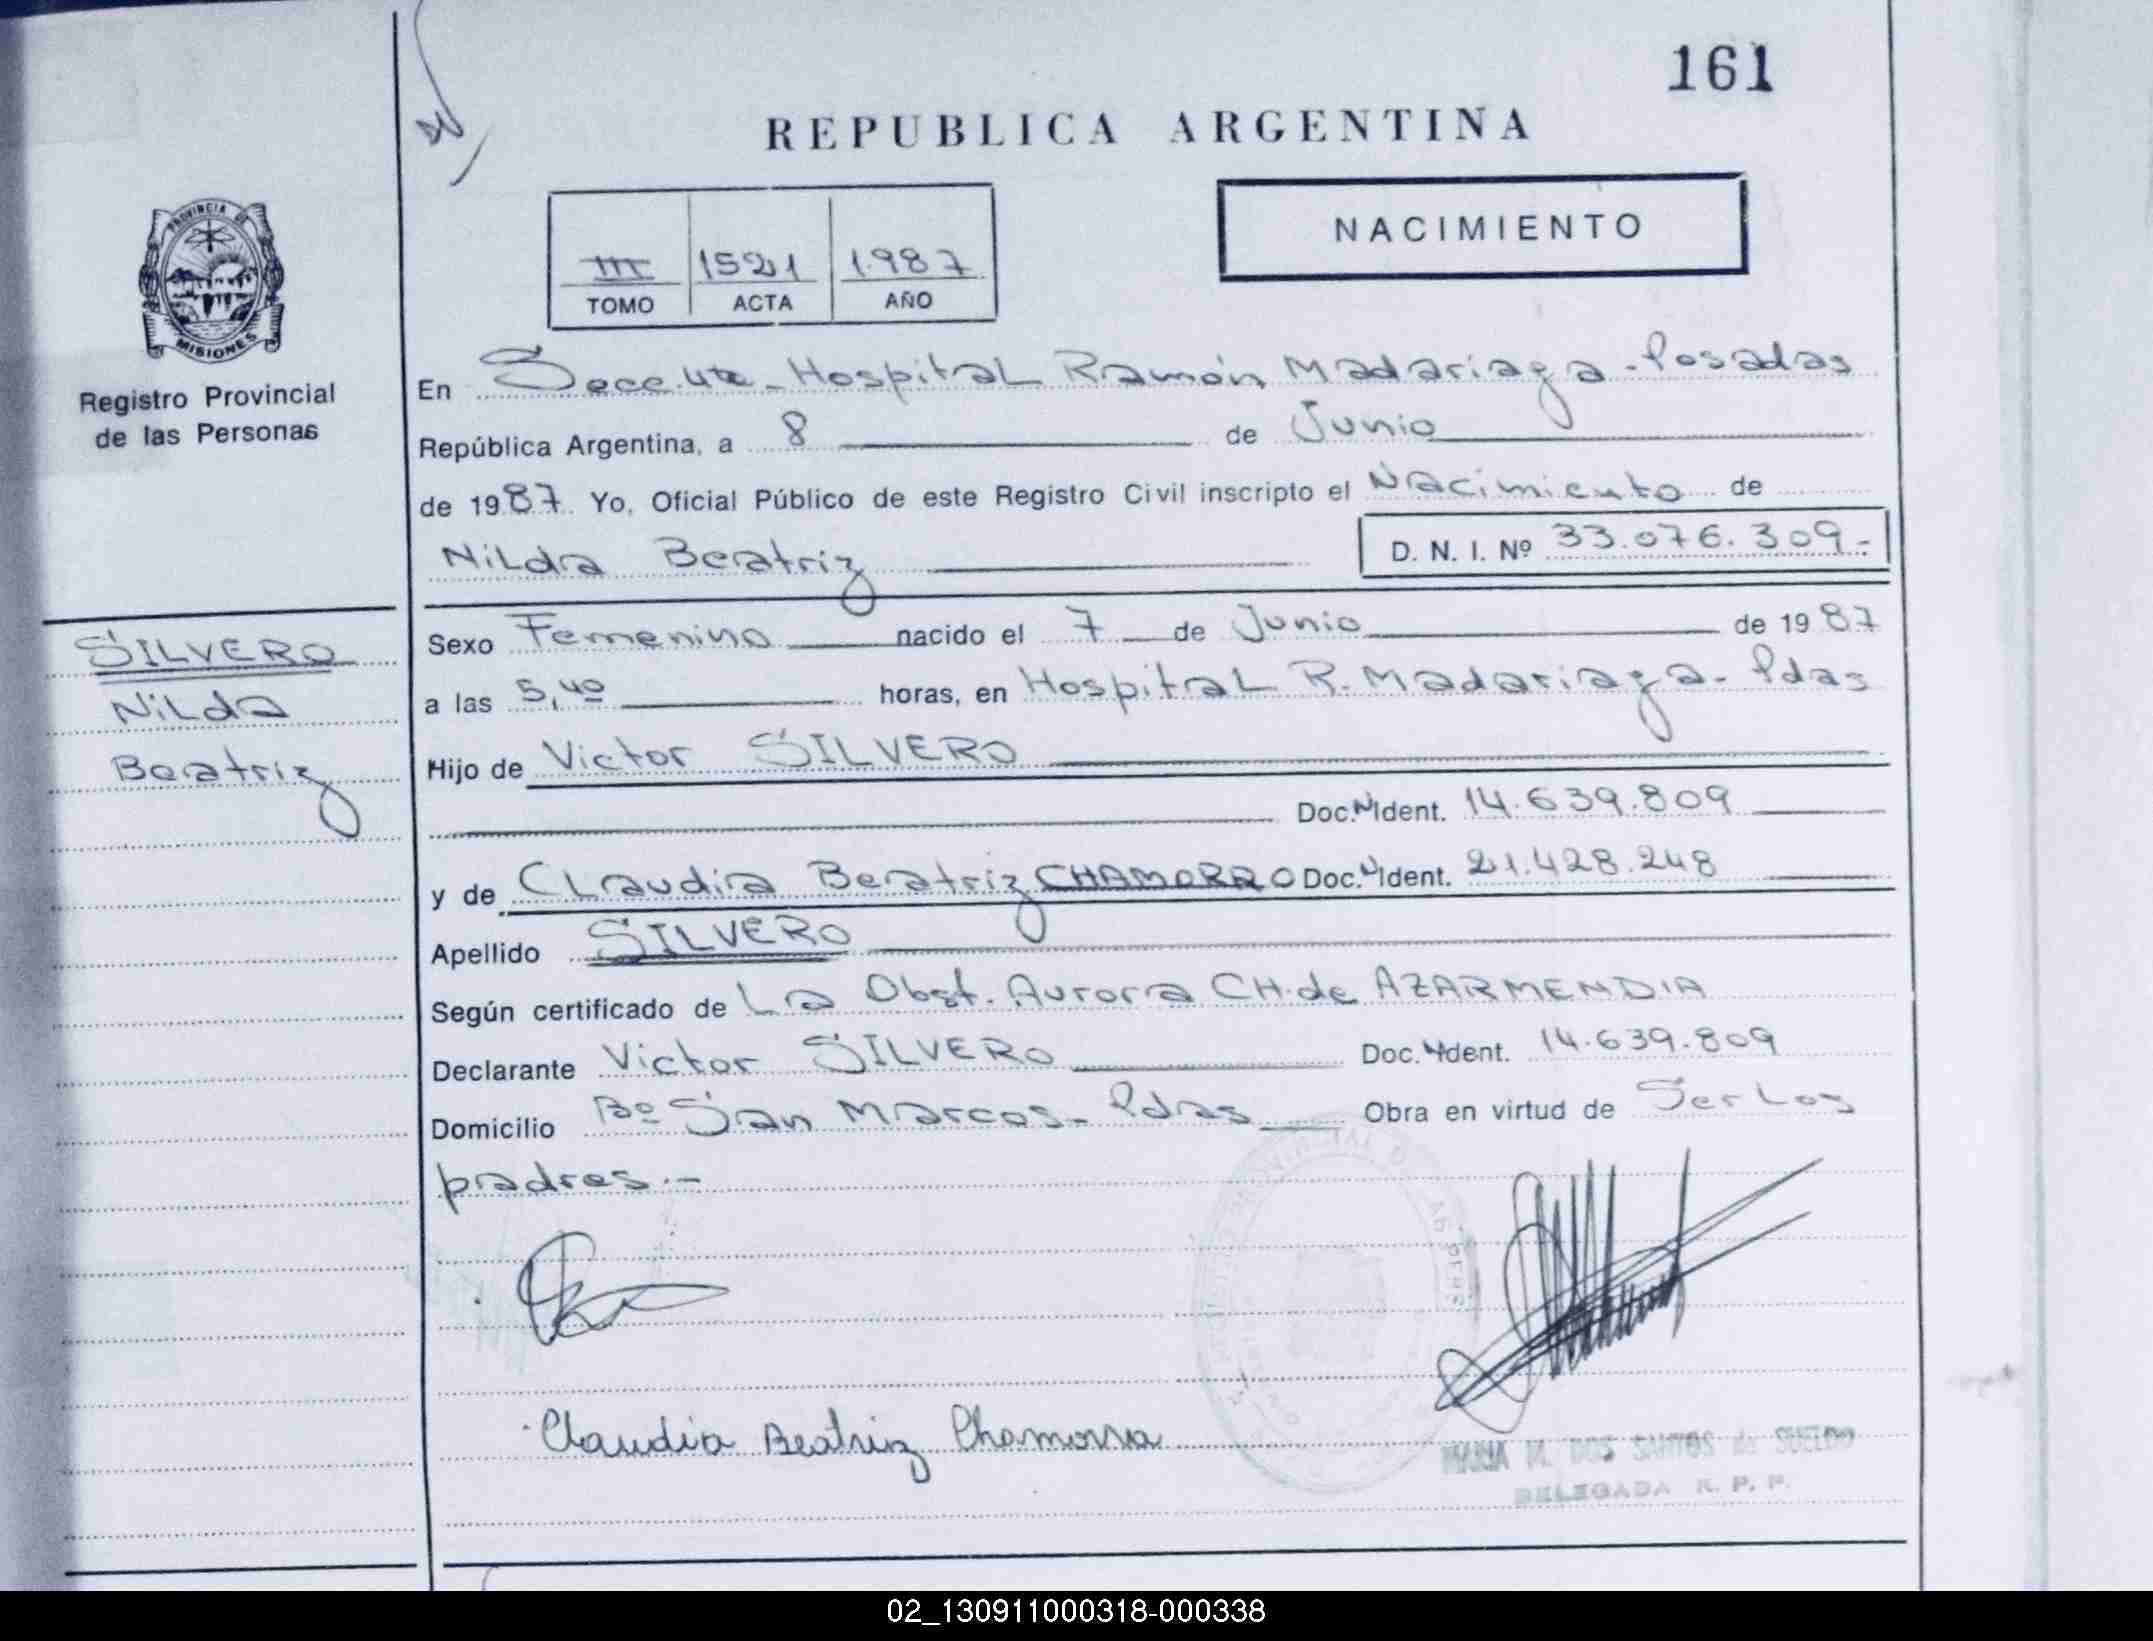 161
REPUBLICA ARGENTINA
NACIMIENTO
III 1521 1987
TOMO ACTA AÑO
PROVINCIA DE
MISIONES
Registro Provincial
de las Personas
SILVERO
Nilda
Beatriz
En Secc. 4ta - Hospital Ramón Madariaga - Posadas
República Argentina, a 8 de Junio
de 1987. Yo, Oficial Público de este Registro Civil inscripto el Nacimiento de
Nilda Beatriz D. N. I. Nº 33.076.309.-
Sexo Femenino nacido el 7 de Junio de 1987
a las 5,40 horas, en Hospital R. Madariaga - Pdas
Hijo de Victor SILVERO
Doc. Ident. 14.639.809
y de Claudia Beatriz CHAMORRO Doc. Ident. 21.428.248
Apellido SILVERO
Según certificado de La Obst. Aurora CH. de AZARMENDIA
Declarante Victor SILVERO Doc. Ident. 14.639.809
Domicilio Bº San Marcos - Pdas Obra en virtud de Ser Los
padres.-
Claudia Beatriz Chamorro
MARIA M. DOS SANTOS de SUELDO
DELEGADA R. P. P.
02_130911000318-000338